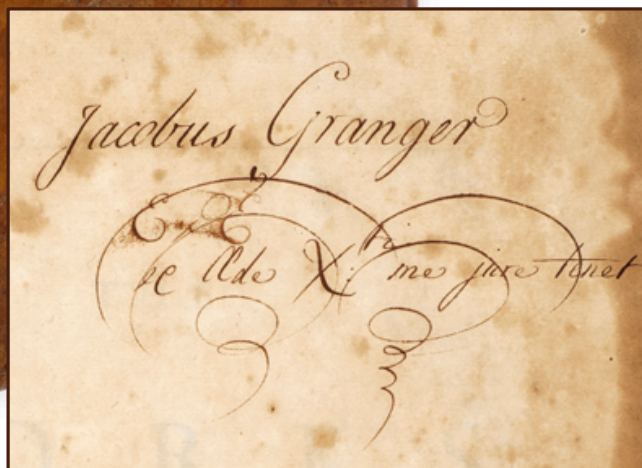 Jacobus Granger
Æde me jure tenet